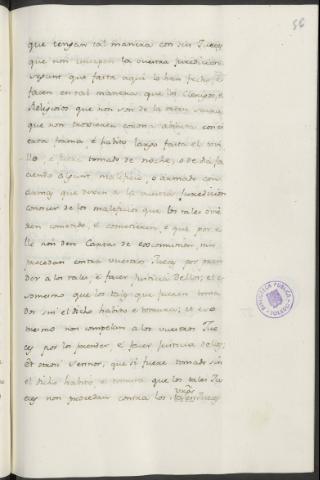 56
que tengan tal manera con sus Jueces
que non usurpen la vuestra jurediccion
segunt que fasta aqui lo han fecho, e
facen en tal manera que los Clerigos, e
Religiosos que non son de la orden sacra
que non troxieren corona abierta con
cota forma, e habito largo fasta el tovi
llo, e fuere tomado de noche, o de dia fa
ciendo algunt maleficio, o armado con
armas que dexen a la vuestra jurediccion
conocer de los maleficios que los tales ovie
ren cometido, e cometieren, e que por e
llo non den Cartas de excomunion, nin
procedan contra vuestros Jueces por pren
der a los tales, e facer justicia dellos; e e
somesmo que los tales que fueren toma
dos sin el dicho habito e tonsura; e eso
mesmo non compelan a los vuestros Jue
ces por los prender, e facer justicia dellos;
Et otrosi Sennor, que si fuere tomado sin
el dicho habito, e tonsura que los tales Ju
eces non procedan contra los vros Jueces
BIBLIOTECA PUBLICA
TOLEDO